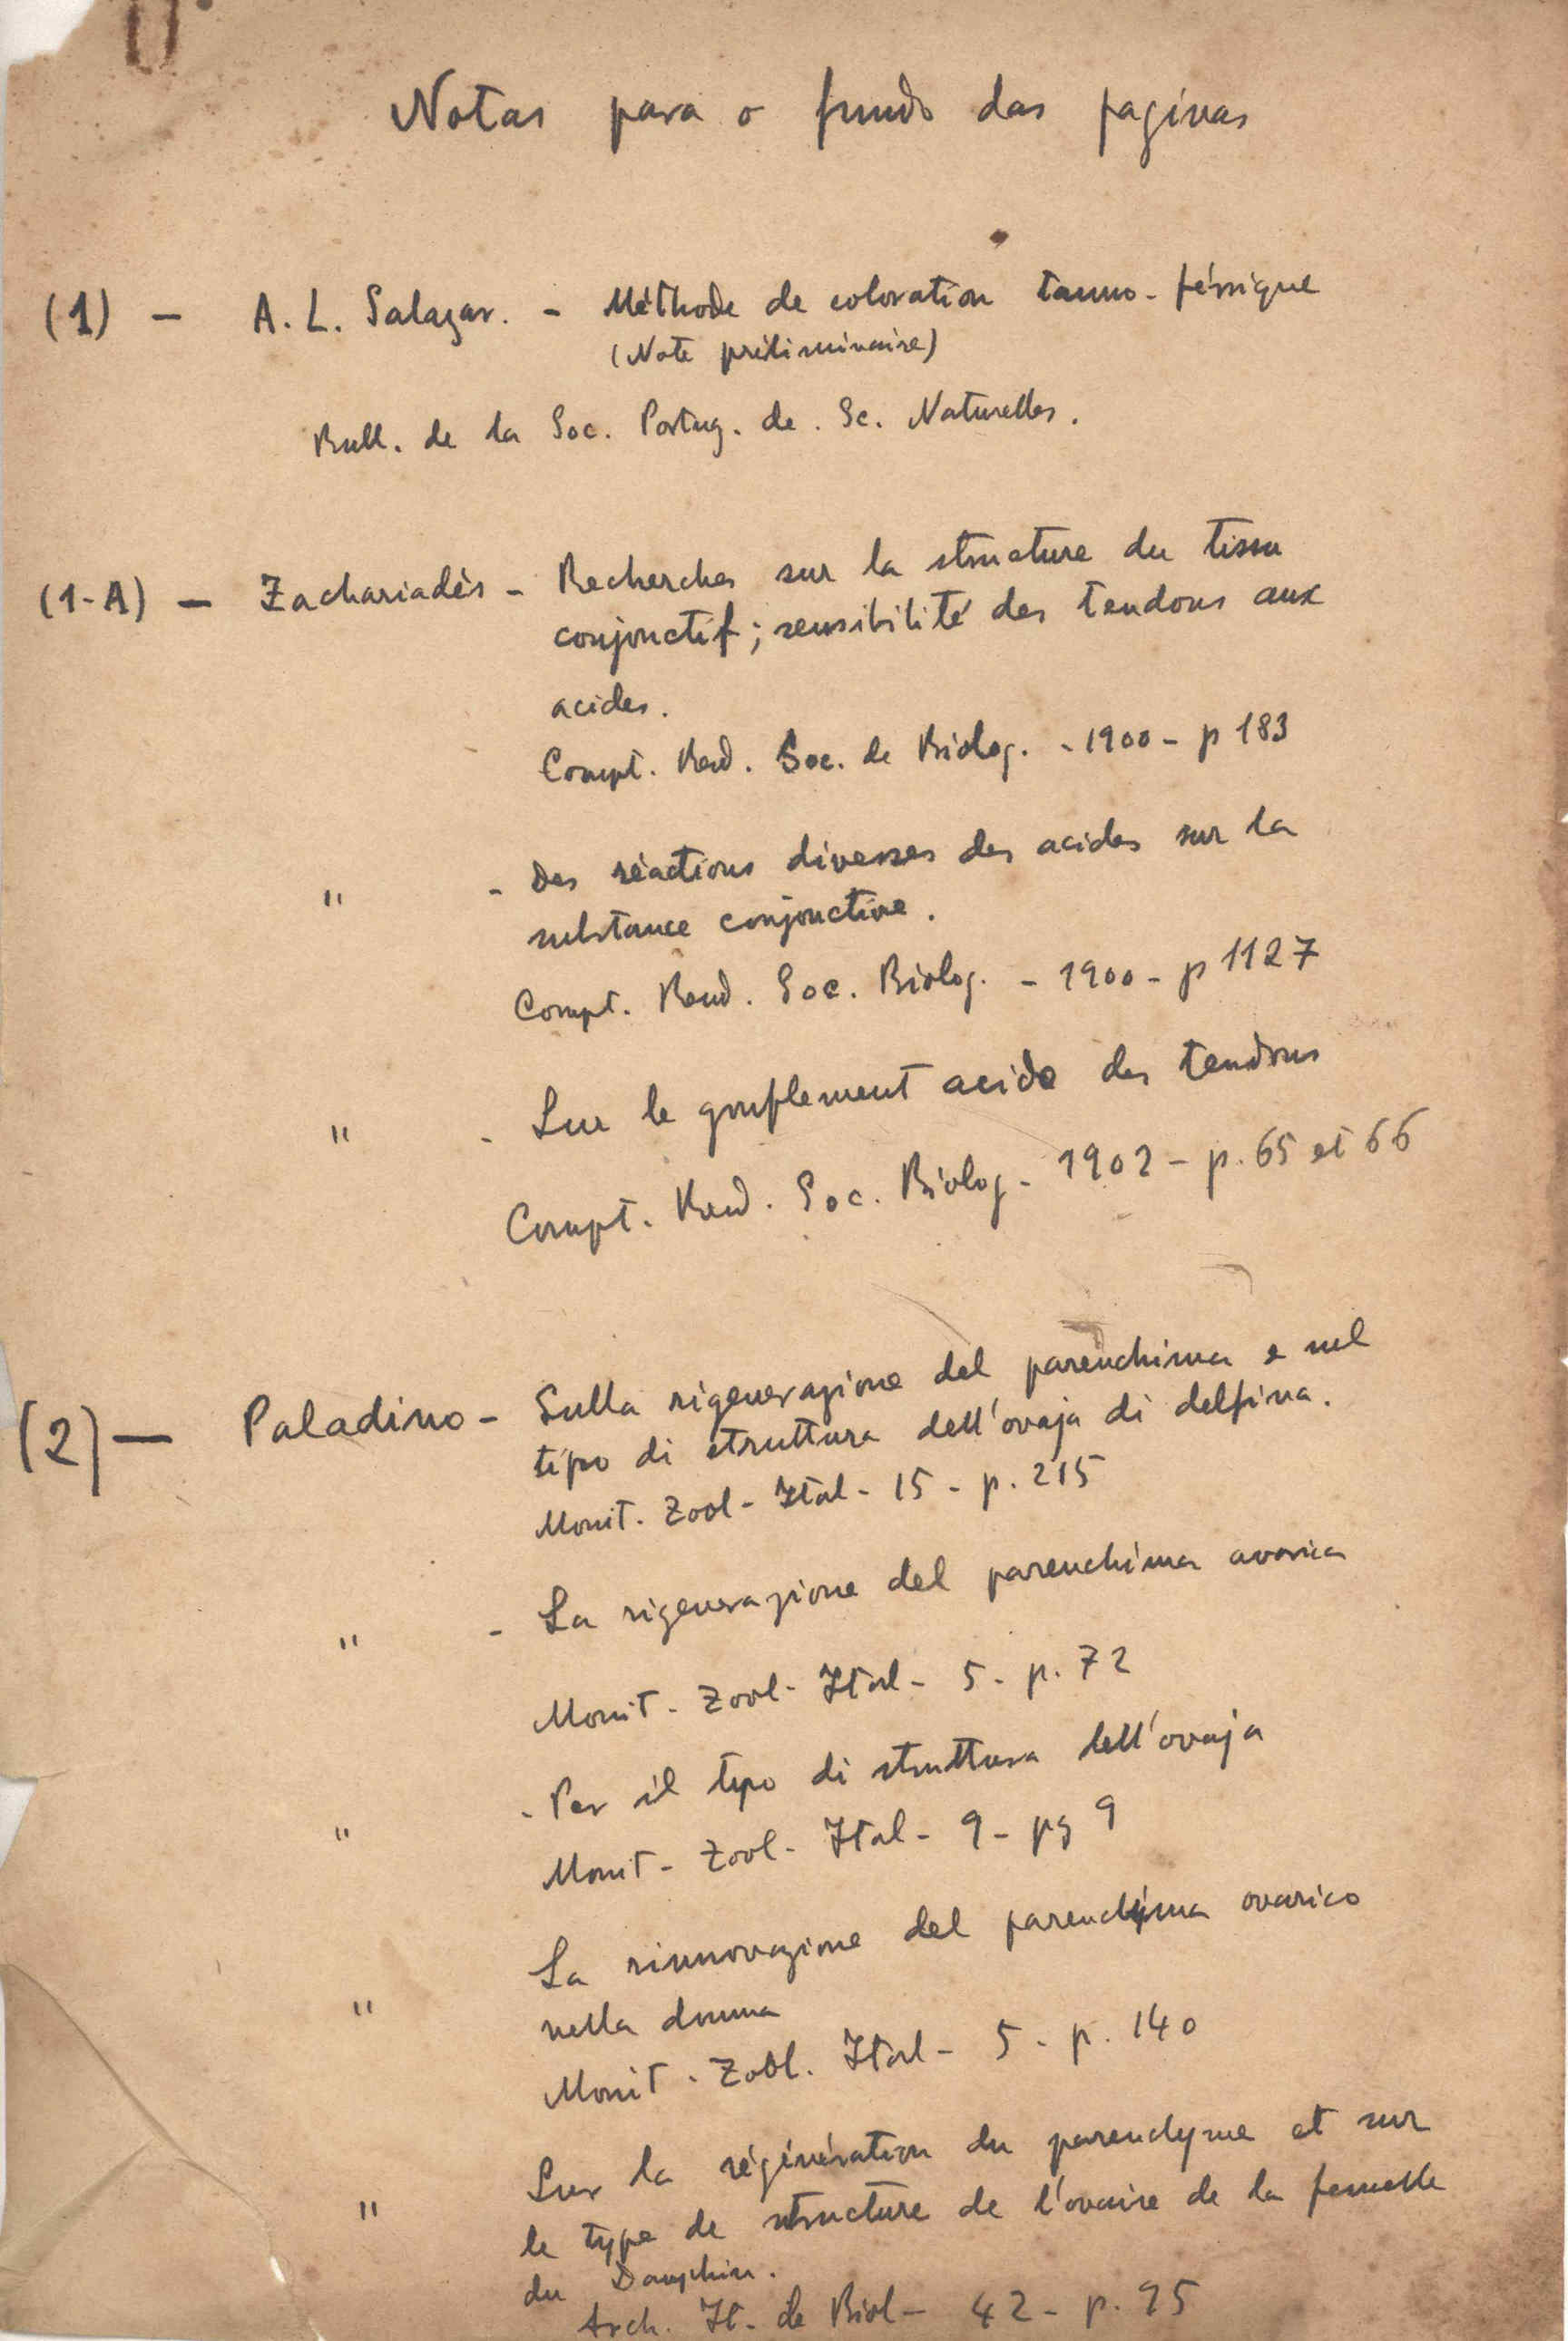 Notas para o fundo das paginas
(1) - A. L. Salazar. - Méthode de coloration tanno-férrique
(Note préliminaire)
Bull. de la Soc. Portug. de. Sc. Naturelles.
(1-A) - Zachariadès - Recherches sur la structure du tissu
conjonctif; sensibilité des tendons aux
acides.
Compt. Rend. Soc. de Biolog. - 1900 - p 183
" - Des réactions diverses des acides sur la
substance conjonctive.
Compt. Rend. Soc. Biolog. - 1900 - p 1127
" - Sur le gonflement acide des tendons
Compt. Rend. Soc. Biolog - 1902 - p. 65 et 66
(2) - Paladino - Sulla rigenerazione del parenchima e nel
tipo di struttura dell'ovaja di delfina.
Monit. Zool - Ital - 15 - p. 215
" - La rigenerazione del parenchima
Monit - Zool - Ital - 5 - p. 72
" - Per il tipo di struttura dell'ovaja
Monit - Zool - Ital - 9 - pg 9
" La rinnovazione del parenchima ovarico
nella donna
Monit. Zool. Ital - 5 - p. 140
" Sur la régénération du parenchyme et sur
le type de structure de l'ovaire de la femelle
du Dauphin.
Arch. It. de Biol - 42 - p. 95